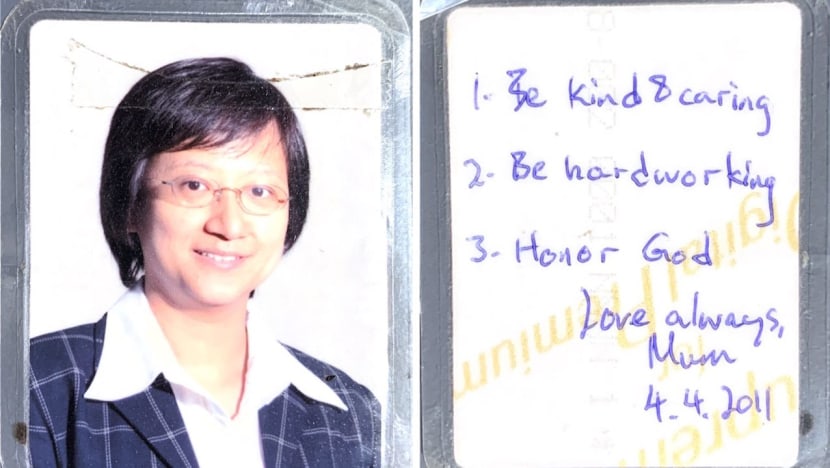 1. Be kind & caring
2. Be hardworking
3. Honor God
Love always,
Mum
4.4.2011
Digital Premium